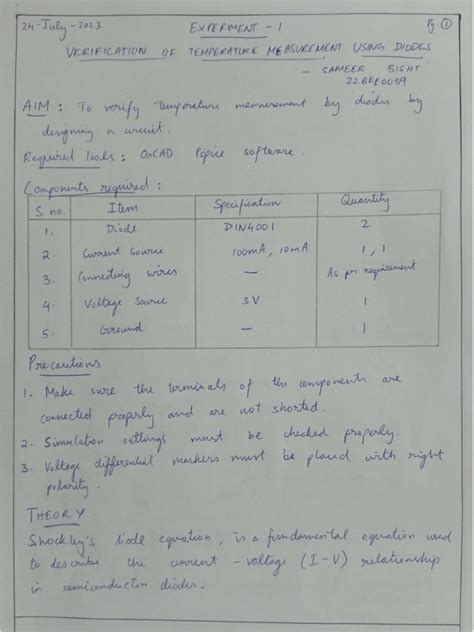 24-July-2023 EXPERIMENT-1 Pg. ①
VERIFICATION OF TEMPERATURE MEASUREMENT USING DIODES
- SAMEER BISHT
22BEE0039
AIM : To verify temperature measurement by diodes by
designing a circuit.
Required tools : OrCAD Pspice software.
Components required :
S. no. Item Specification Quantity
1. Diode DIN4001 2
2. Current Source 100mA, 10mA 1, 1
3. Connecting wires — As per requirement
4. Voltage Source 3V 1
5. Ground — 1
Precautions
1. Make sure the terminals of the components are
connected properly and are not shorted.
2. Simulation settings must be checked properly.
3. Voltage differential markers must be placed with right
polarity.
THEORY :
Shockley's diode equation, is a fundamental equation used
to describe the current - voltage (I-V) relationship
in semiconductor diodes.